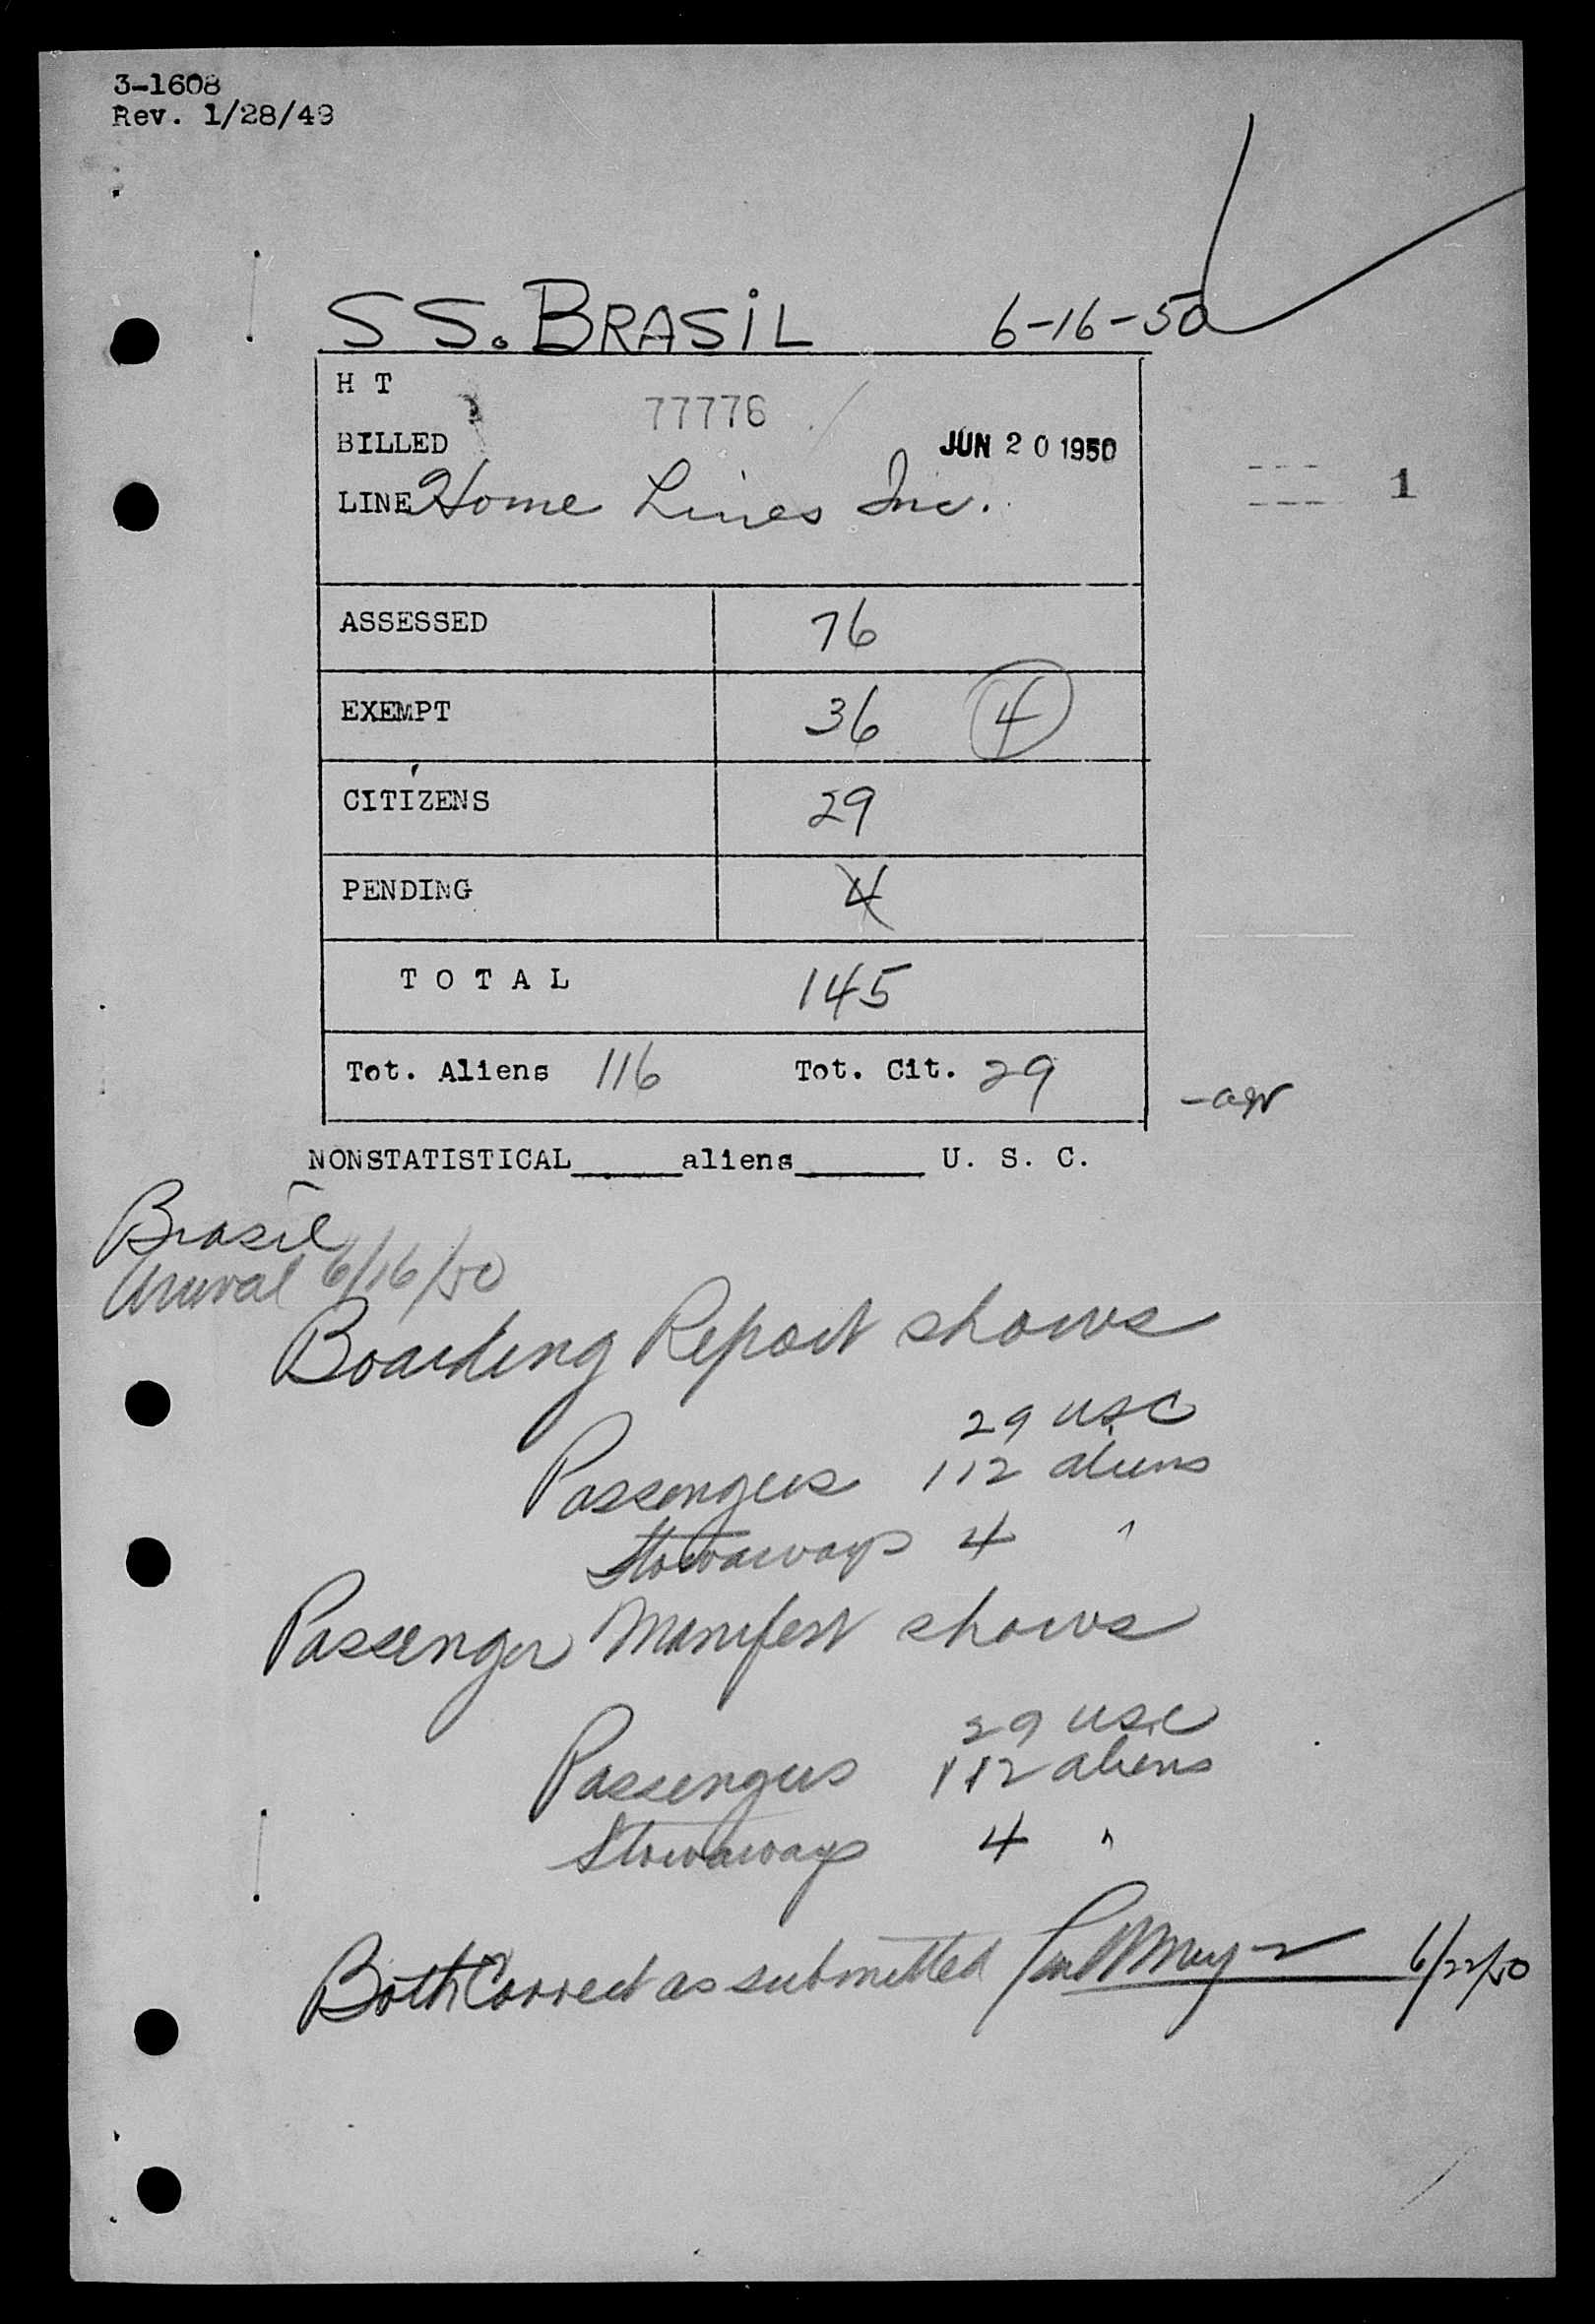 3-1608
Rev. 1/28/49
SS. BRASIL 6-16-50
H T
77776
BILLED JUN 20 1950
LINE Home Lines Inc.
1
ASSESSED 76
EXEMPT 36 4
CITIZENS 29
PENDING 4
TOTAL 145
Tot. Aliens 116 Tot. Cit. 29
NONSTATISTICAL______aliens_______ U. S. C.
Brasil
Arrival 6/16/50
Boarding Report shows
29 USC
Passengers 112 aliens
Stowaways 4 "
Passenger Manifest shows
29 USC
Passengers 112 aliens
Stowaways 4 "
Both Correct as submitted 6/22/50